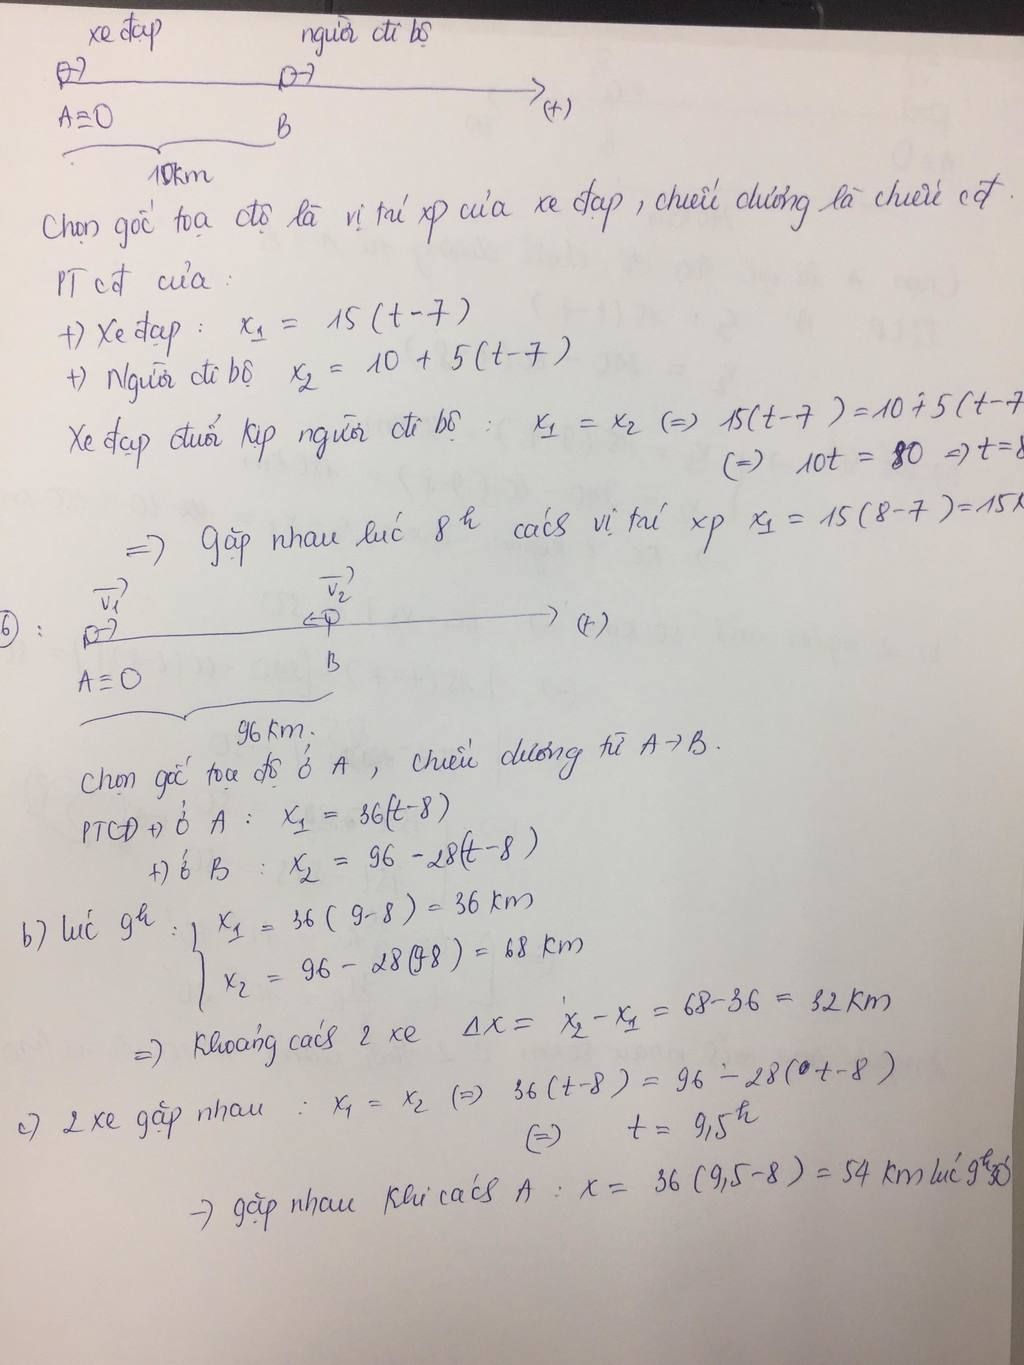 xe đạp người đi bộ
A≡O B (+)
10km
Chọn gốc toạ độ là vị trí xp của xe đạp, chiều dương là chiều cđ.
PT cđ của :
+) Xe đạp : x₁ = 15(t-7)
+) Người đi bộ x₂ = 10 + 5(t-7)
Xe đạp đuổi kịp người đi bộ : x₁ = x₂ (=) 15(t-7) = 10+5(t-7
(=) 10t = 80 => t=8
=> Gặp nhau lúc 8ʰ cách vị trí xp x₁ = 15(8-7)=15k
6) : v₁ v₂
A≡O B (+)
96 km.
Chọn gốc toạ độ ở A, chiều dương từ A→B.
PTCĐ +) ở A : x₁ = 36(t-8)
+) ở B : x₂ = 96 - 28(t-8)
b) lúc 9ʰ : x₁ = 36(9-8) = 36 km
x₂ = 96 - 28(9-8) = 68 km
=> Khoảng cách 2 xe Δx = x₂ - x₁ = 68-36 = 32 km
c) 2 xe gặp nhau : x₁ = x₂ (=) 36(t-8) = 96 - 28(t-8)
(=) t = 9,5ʰ
→ gặp nhau khi cách A : x = 36(9,5-8) = 54 km lúc 9ʰ30